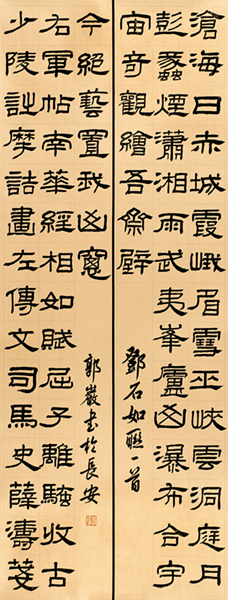 滄海日赤城霞峨眉雪巫峽雲洞庭月
彭蠡煙瀟湘雨武夷峯廬山瀑布合宇
宙奇觀繪吾齋壁
鄧石如聯一首
少陵詩摩詰畫左傳文司馬史薛濤箋
右軍帖南華經相如賦屈子離騷收古
今絕藝置我山窻
郭巖书於長安